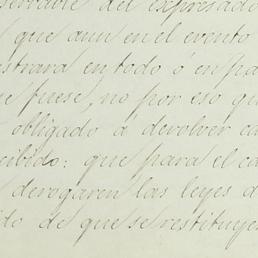 servarle del expresado
que aun en el evento
strara en todo ó en pa
e fuese, no por eso qu
obligado á devolver ca
cibido: que para el ca
derogaren las leyes d
do de que se restituye